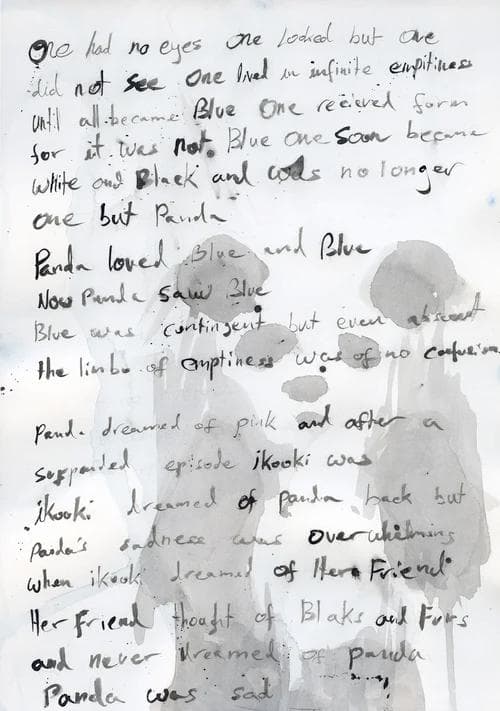 One had no eyes one looked but one
did not see one lived in infinite emptiness
until all became Blue One recieved form
for it was not. Blue one soon became
white and Black and was no longer
one but Panda
Panda loved Blue and Blue
Now Panda saw Blue
Blue was contingent but even absent
the limbo of emptiness was of no confusion
Panda dreamed of pink and after a
suspanded episode ikooki was
ikooki dreamed of panda back but
Panda's sadness was overwhelming
when ikooki dreamed of Her Friend
Her Friend thought of Blaks and Furs
and never dreamed of panda
Panda was sad